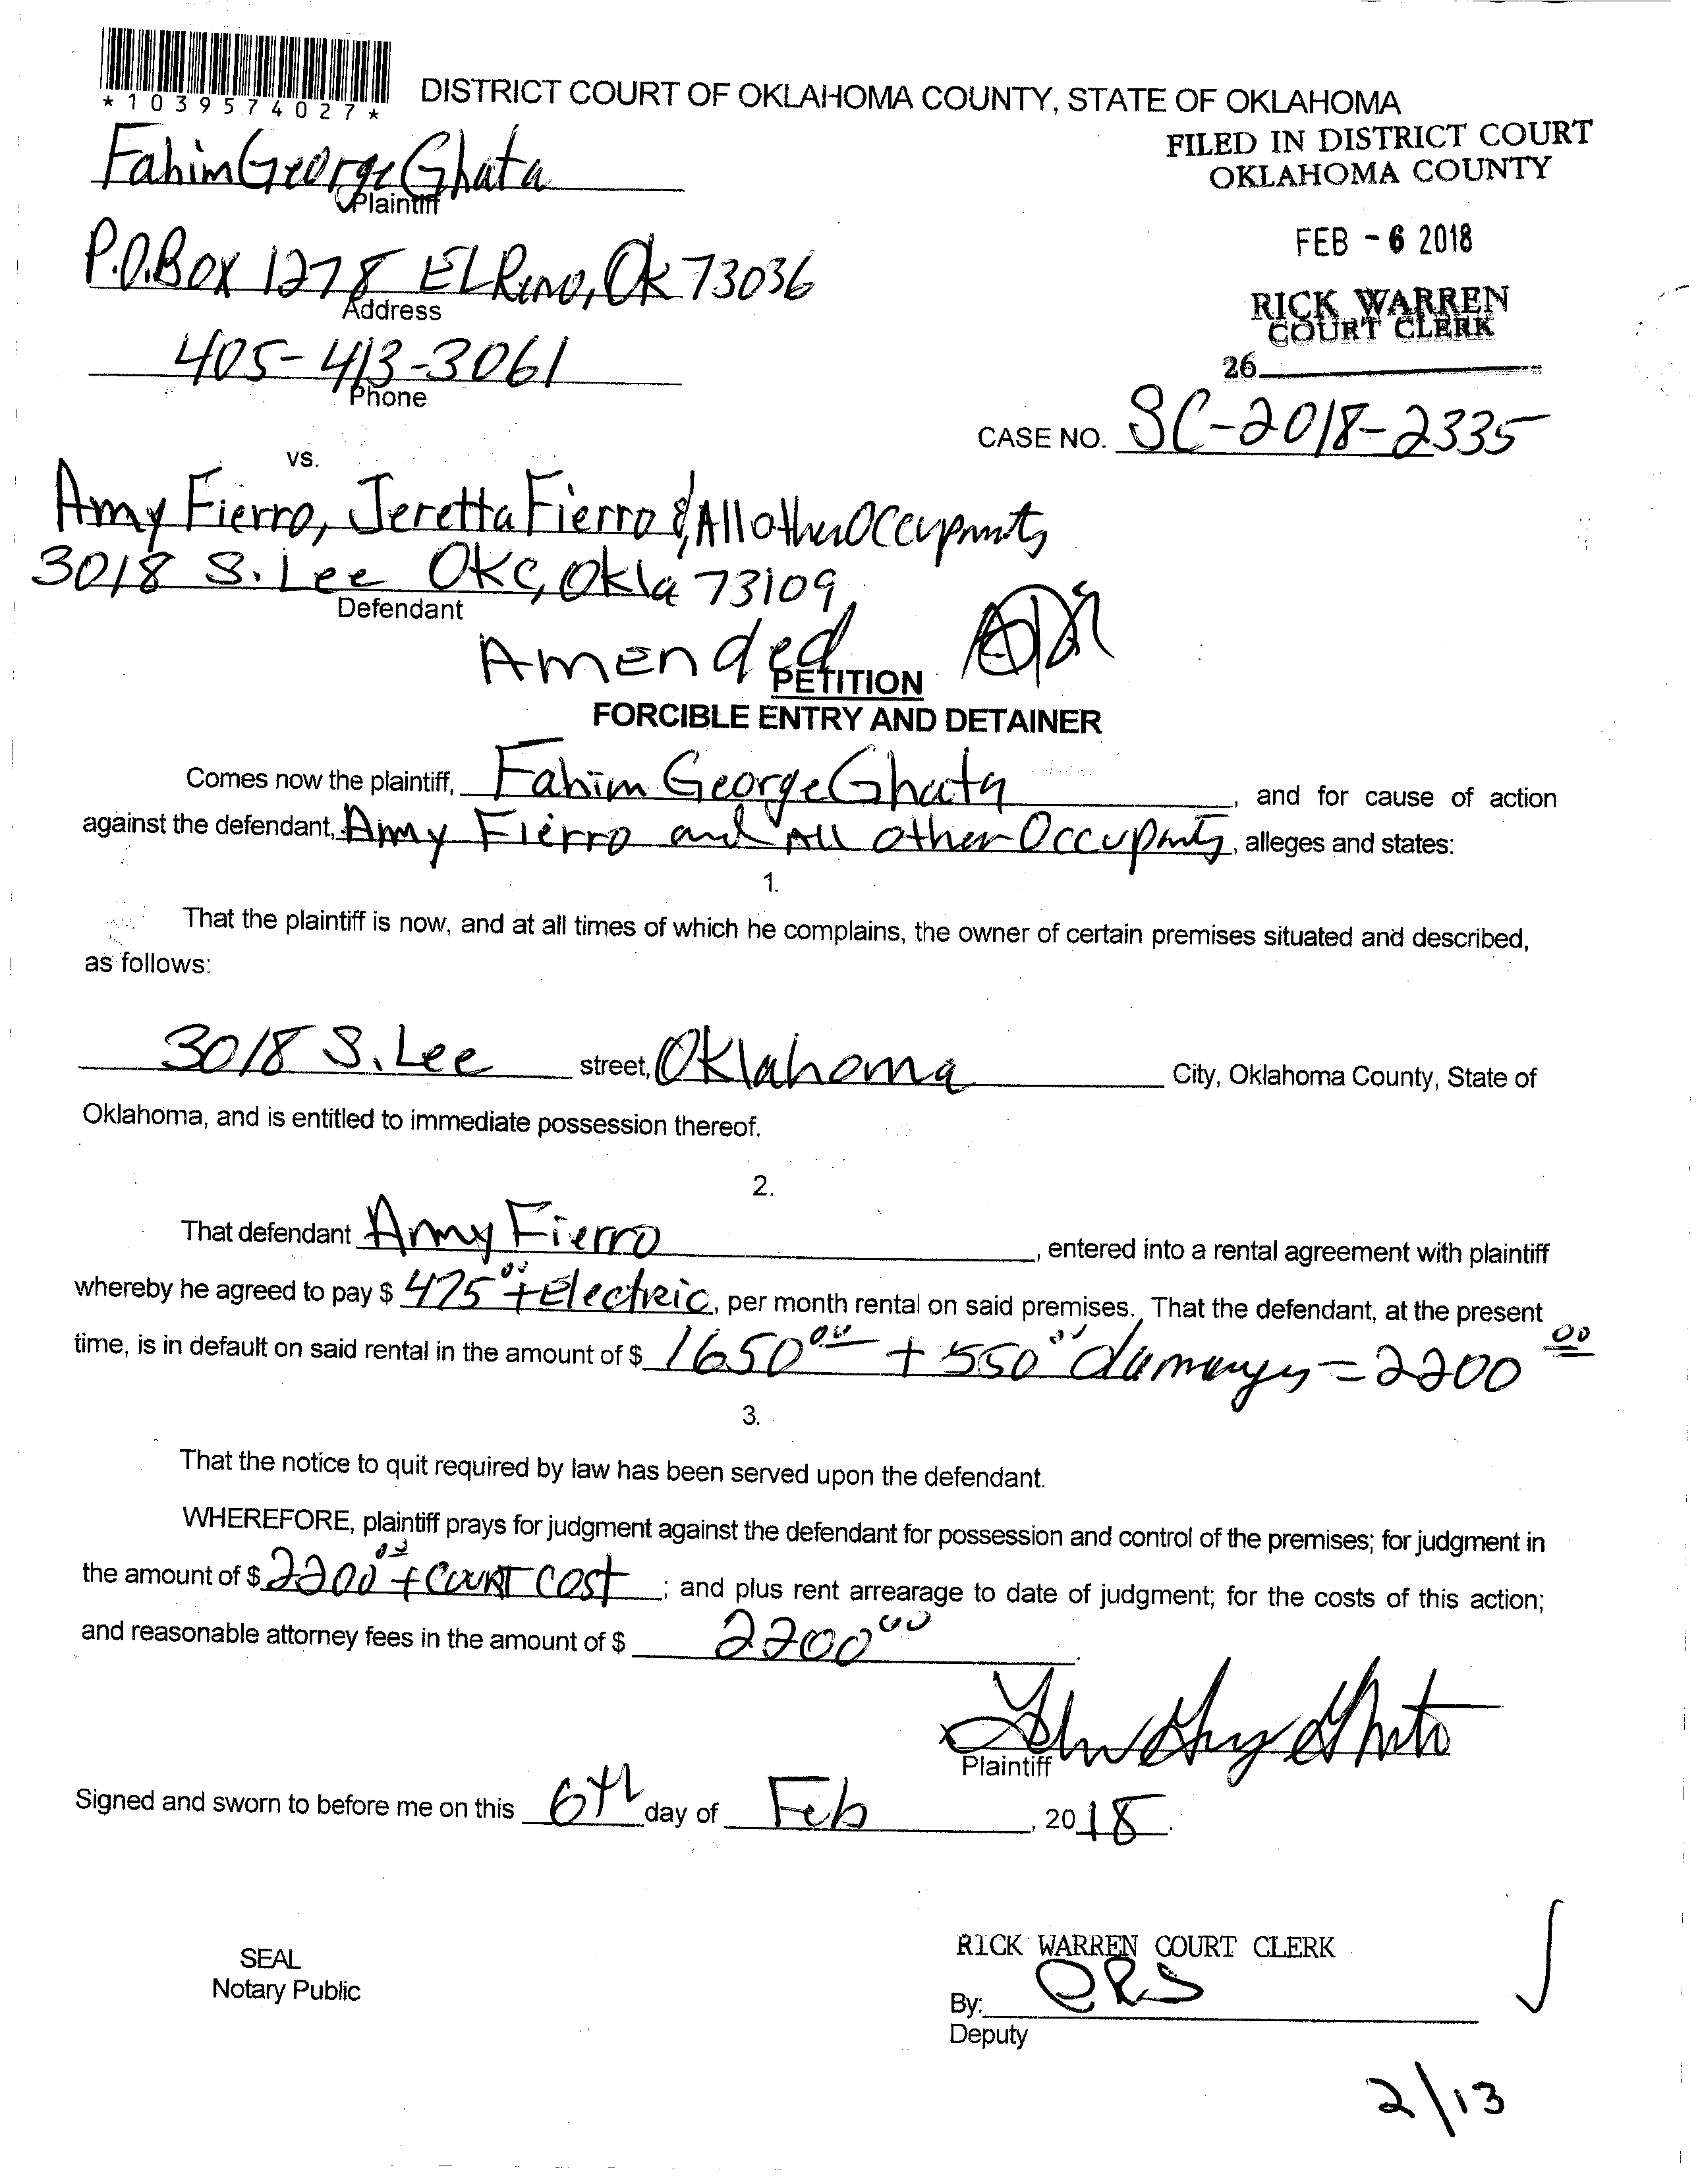 *1039574027*
DISTRICT COURT OF OKLAHOMA COUNTY, STATE OF OKLAHOMA
FILED IN DISTRICT COURT
OKLAHOMA COUNTY
Fahim George Ghata
Plaintiff
FEB - 6 2018
P.O.Box 1278 EL Reno, Ok 73036
Address
RICK WARREN
COURT CLERK
405-413-3061
Phone
26
CASE NO. SC-2018-2335
vs.
Amy Fierro, Jeretta Fierro & All other Occupants
3018 S. Lee OKC, Okla 73109
Defendant
Amended PETITION
FORCIBLE ENTRY AND DETAINER
Comes now the plaintiff, Fahim George Ghata, and for cause of action
against the defendant, Amy Fierro and All other Occupants, alleges and states:
1.
That the plaintiff is now, and at all times of which he complains, the owner of certain premises situated and described,
as follows:
3018 S. Lee street, Oklahoma City, Oklahoma County, State of
Oklahoma, and is entitled to immediate possession thereof.
2.
That defendant Amy Fierro, entered into a rental agreement with plaintiff
whereby he agreed to pay $ 475 00 + Electric, per month rental on said premises. That the defendant, at the present
time, is in default on said rental in the amount of $ 1650 00 + 550 00 damages = 2200 00
3.
That the notice to quit required by law has been served upon the defendant.
WHEREFORE, plaintiff prays for judgment against the defendant for possession and control of the premises; for judgment in
the amount of $ 2200 00 + COURT COST; and plus rent arrearage to date of judgment; for the costs of this action;
and reasonable attorney fees in the amount of $ 2200 00.
Plaintiff
Signed and sworn to before me on this 6th day of Feb, 2018.
SEAL
Notary Public
RICK WARREN COURT CLERK
By:
Deputy
2/13